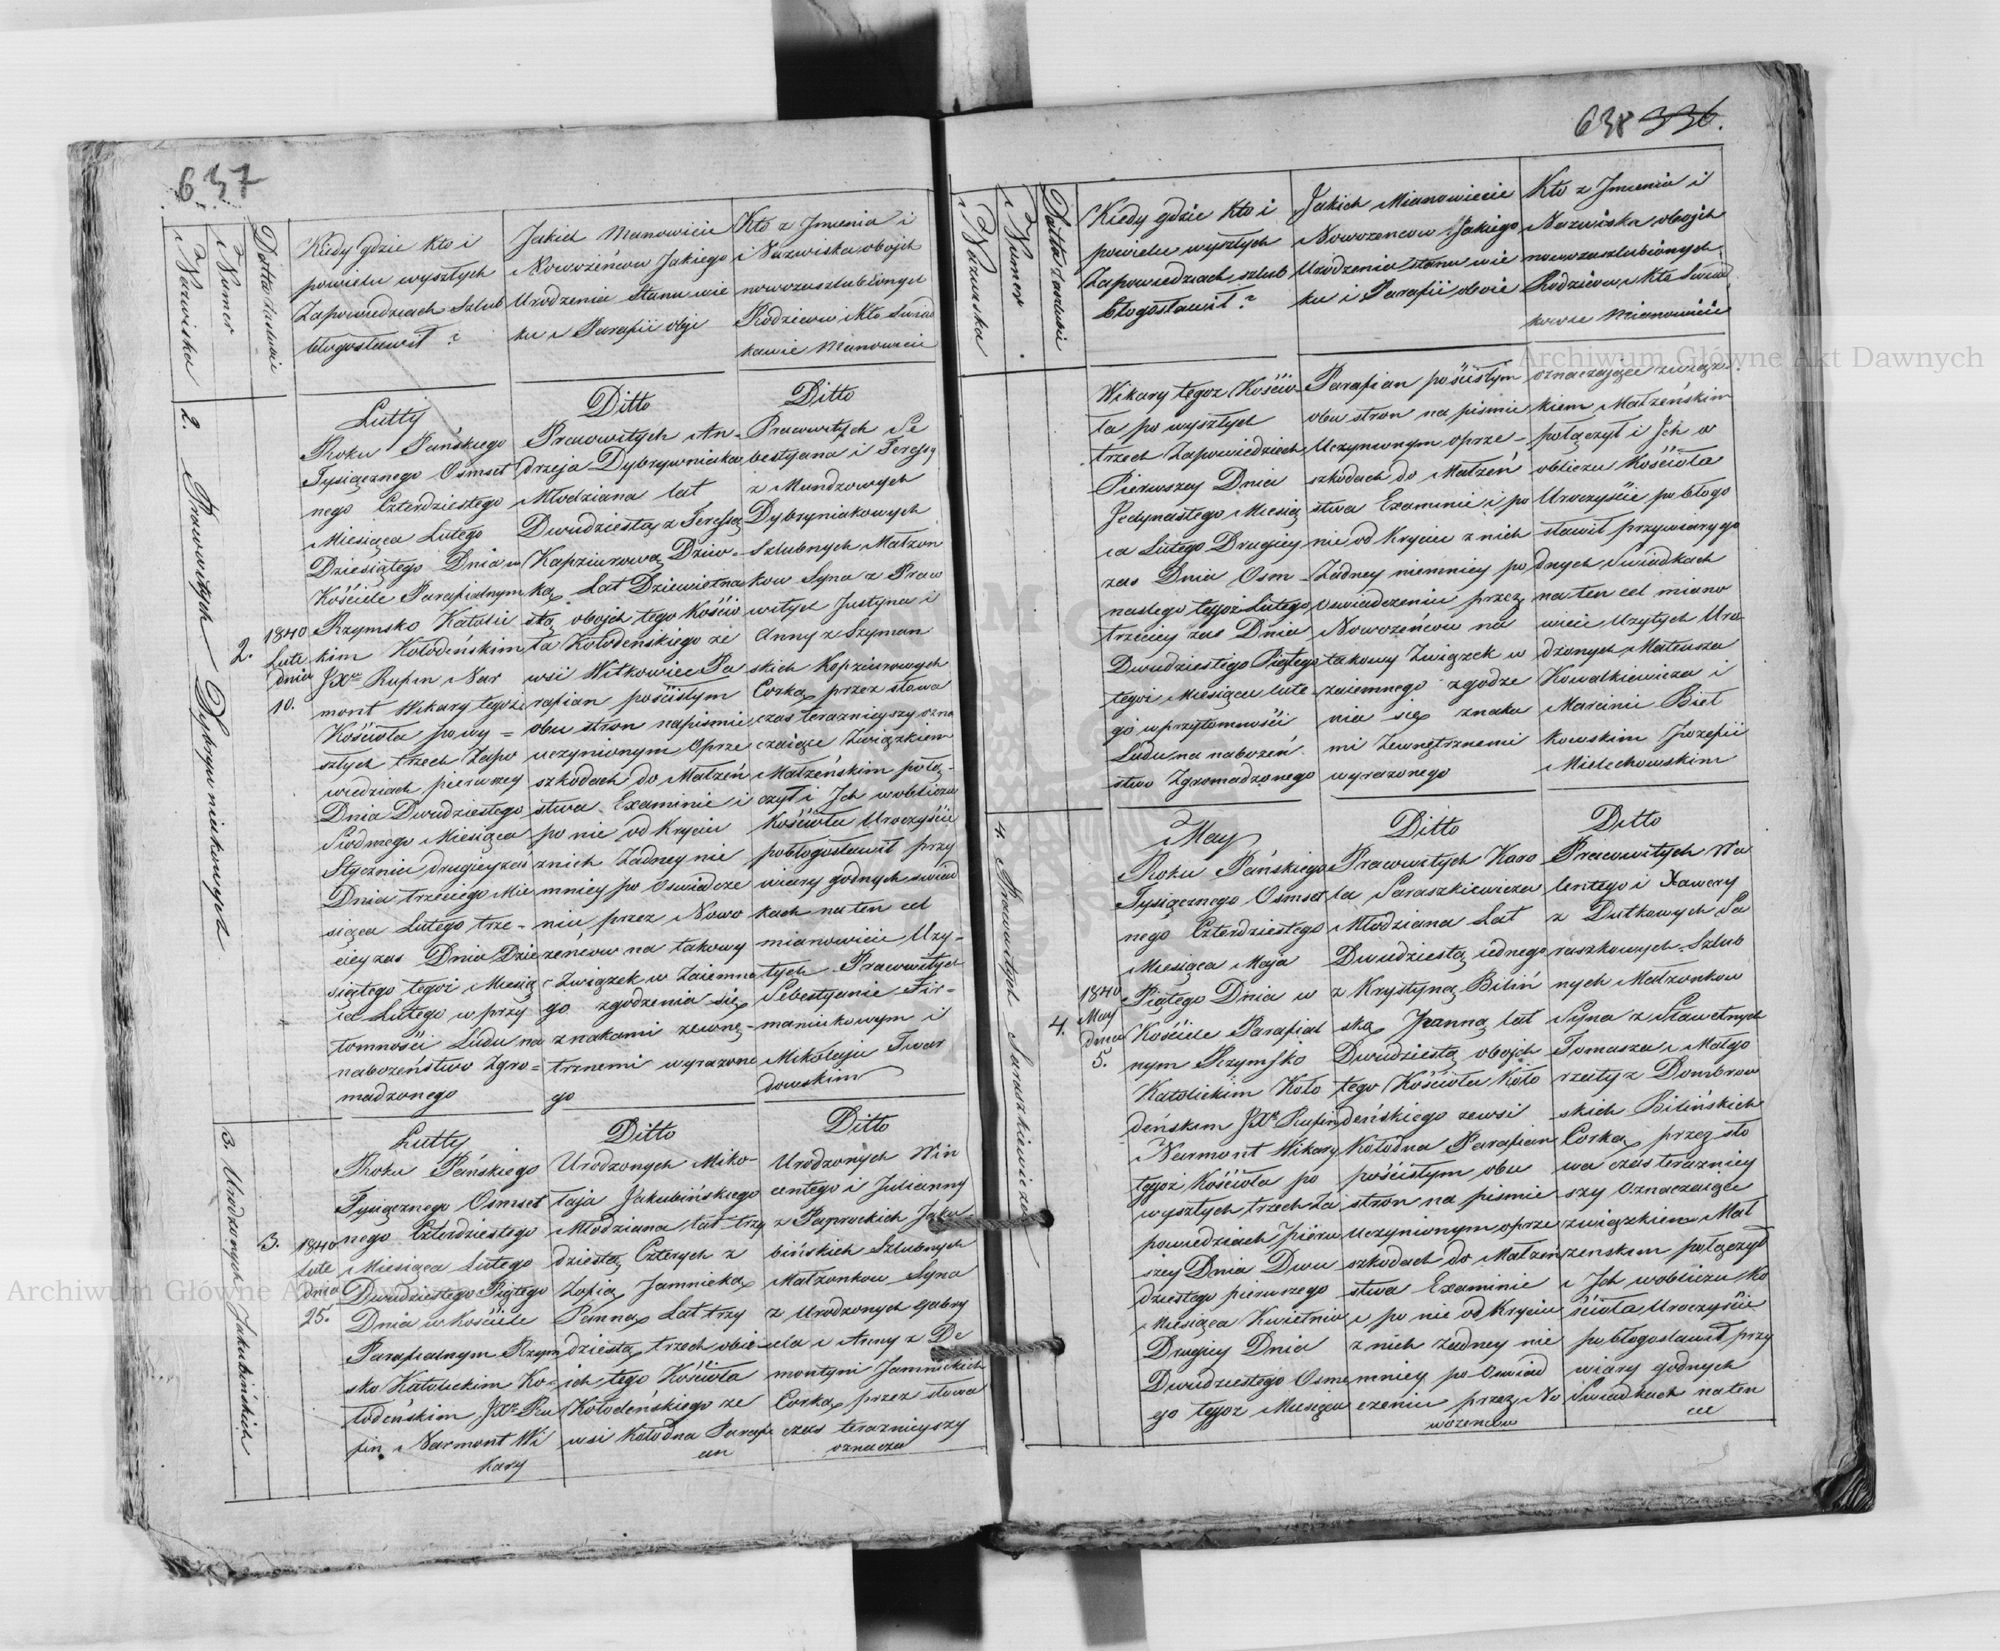 637
Nazwiska
Numer
Datta zaslubie
Kiedy gdzie kto i
powielu wyszłych
Zapowiedziach Szlub
błogosławił ?
Jakich Manowicie
Nowożeńcow Jakiego
Urodzenia Stanu wie
ku i Parafii obje
Kto z Jmienia i
i Nazwiska oboich
nowozaszlubionych
Rodzicow i Kto Swiad
kowie Manowicie
2. Pracowitych Dybrywniakowych
2.
1840
Lute
dnia
10.
Lutty
Roku Pańskiego
Tysiącznego Osmset
nego Czterdziestego
Miesiąca Lutego
Dziesiątego Dnia w
Kościele Parafialnym
Rzymsko Katolic
kim Kołodeńskim
JXz Rufin Nar
mont Wikary tegoż
Kościoła powy =
szłych trzech Zapo
wiedziach pierwszey
Dnia Dwudziestego
Siodmego Miesiąca
Stycznia drugiey zas
Dnia trzeciego Mie
siąca Lutego trze-
ciey zas Dnia Dzie
siątego tegoż Miesią
ca Lutego w przy
tomności Ludu na
nabożeństwo Zgro=
madzonego
Ditto
Pracowitych An-
drzeja Dybrywniaka
Młodziana lat
Dwudziestą z Teressą
Kapziurową Dziw-
ką Lat Dziewietna
stą oboich tego Kościo
ła Kołodeńskiego ze
wsi Witkowiec Pa
rafian pościsłym
obu stron napismie
uczynionym oprze
szkodach do Małżeń
stwa Examinie i
po nie od Kryciu
znich Żadney nie
mniey po Oswiadcze
niu przez Nowo
żeńcow na takowy
Związek w Zaiemne
go zgodzenia się
znakami zewnę-
trznemi wyrażone
go
Ditto
Pracowitych Se
bestyana i Teressy
z Mundzowych
Dybryniakowych
Szlubnych Małżon
kow Syna z Praco
witych Justyna i
Anny z Szyman
skich Kopziurowych
Corką przez słowa
czas teraznieyszy ozna
czaiące Związkiem
Małżeńskim połą-
czył i Jch wobliczu
Kościoła Uroczyście
pobłogosławił przy
wiary godnych świad
kach na ten cel
mianowicie Uży-
tych Pracowitych
Sebestyanie Fir-
maniukowym i
Mikołaju Twar
dowskim
3. Urodzonych Jakubińskich
3.
1840
Lute
dnia
25.
Lutty
Roku Pańskiego
Tysiącznego Osmset
nego Czterdziestego
Miesiąca Lutego
Dwudziestego Piątego
Dnia w Kościele
Parafialnym Rzym
sko Katolickim Ko-
łodeńskim, JXz Ru
fin Narmont Wi
kary
Ditto
Urodzonych Miko-
łaja Jakubińskiego
Młodziana lat trzy
dziestą Czterych z
Zofią Jamnicką
Panną Lat trzy
dziestą trzech oboi-
ich tego Kościoła
Kołodeńskiego ze
wsi Kołodna Parafi
an
Ditto
Urodzonych Win
centego i Julianny
z Paprockich Jaku
bińskich Szlubnych
Małżonkow Syna
z Urodzonych Gabry
ela i Anny z De
montyni Jamnickich
Corką przez słowa
czas teraznieyszy
oznacza
638 336.
Nazwiska
Numer
Datta zaszlubie
Kiedy gdzie kto i
powielu wyszłych
Zapowiedziach szlub
błogosławił ?
Jakich Mianowicie
Nowożencow Jakiego
Urodzenia stanu wie
ku i Parafii oboie
Kto z Jmienia i
Nazwiska oboich
nowozaszlubionych
Rodzicow i Kto Swiad
kowie Mianowicie
Wikary tegoż Kościo
ła po wyszłych
trzech Zapowiedziech
Pierwszey Dnia
Jedynastego Miesią
ca Lutego Drugiey
zas Dnia Osm-
nastego tegoż Lutego
trzeciey zas Dnia
Dwudziestigo Piątego
tegoż Miesiąca lute
go w przytomności
Ludu na naboźeń
stwo Zgromadzonego
Parafian pościsłym
obu stron na piśmie
Uczynionym oprze-
szkodach do Małżeń
stwa Examinie i po
nie od Kryciu z nich
Żadney niemniey po
oswiadczeniu przez
Nowożeńcow na
takowy Związek w
zaiemnego zgodze
nia się znaka
mi Zewnętrznemi
wyrażonego
oznaczające związ-
kiem Małżeńskim
połączył i Jch w
obliczu Kościoła
Uroczyście pobłogo
sławił przy wiary go
dnych Swiadkach
na ten cel miano
wicie Użytych Uro
dzonych Mateusza
Kowalkiewicza i
Marcinie Biel
kowskim Jozefii
Mielechowskim
4. Pracowitych Saraszkiewicze
4.
1840
May
dnia
5.
May
Roku Pańskiego
Tysiącznego Osmset
nego Czterdziestego
Miesiąca Maja
Piątego Dnia w
Kościele Parafial
nym Rzymsko
Katolickim Koło
deńskim JXz Rufin
Narmont Wikary
tegoż Kościoła po
wyszłych trzech Za
powiedziach pierw
szey Dnia Dwu
dziestego pierwszego
Miesiąca Kwietnia
Drugiey Dnia
Dwudziestego Osme
go tegoż Miesiąca
Ditto
Pracowitych Karo
la Saraszkiewicza
Młodziana Lat
Dwudziestą iednego
z Krystyną Biliń
ską Panną lat
Dwudziestą oboich
tego Kościoła Koło
deńskiego zewsi
Kołodna Parafian
pościsłym obu
stron na pismie
uczynionym oprze
szkodach do Małżeń
stwa Examinie
i po nie od Kryciu
z nich żadney nie
mniey po Oswiad
czeniu przez No
wożencow
Ditto
Pracowitych Wa
lentego i Xawery
z Dutkowych Sa
raszkowych Szlub
nych Małżonkow
Syna z Sławetnych
Tomasza i Małgo
rzaty z Dombrow
skich Bilińskich
Corką przez sło
wa czas terazniey
szy Oznaczaiące
związkiem Mał
żenskim połączył
i Jch wobliczu Ko
ścioła Uroczyście
pobłogosławił przy
wiary godnych
Swiadkach na ten
ce
Archiwum Główne Akt Dawnych
Archiwum Główne Akt Dawnych